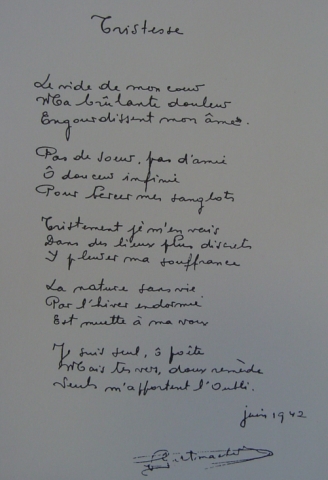 Tristesse
Le vide de mon cœur
Ma brûlante douleur
Engourdissent mon âme.
Pas de soeur, pas d'amie
Ô douceur infinie
Pour bercer mes sanglots
Tristement je m'en vais
Dans des lieux plus discrets
Y pleurer ma souffrance
La nature sans vie
Par l'hiver endormie
Est muette à ma voix
Je suis seul, ô poète
Mais tes vers, doux remède
Seuls m'apportent l'Oubli.
juin 1942